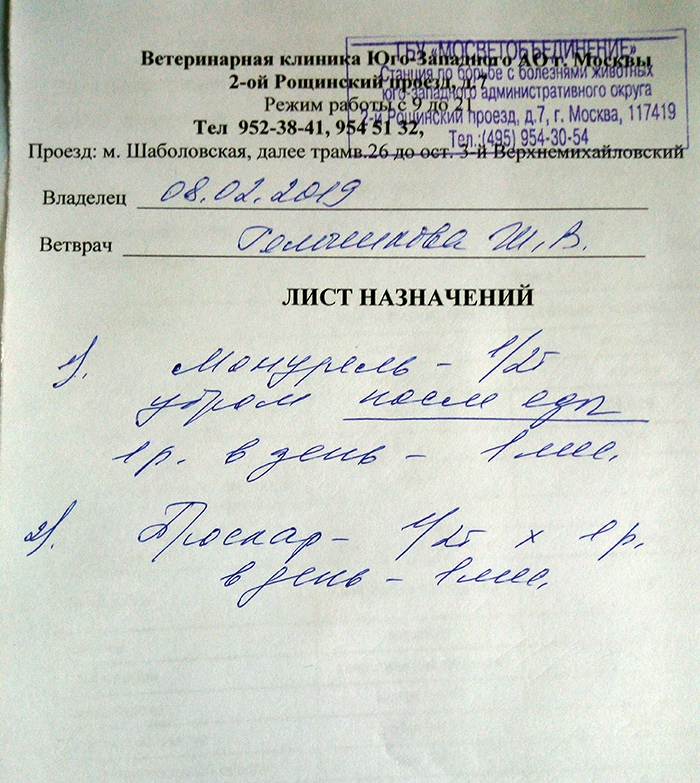 Ветеринарная клиника Юго-Западного АО г. Москвы
2-ой Рощинский проезд, д.7
Режим работы с 9 до 21
Тел 952-38-41, 954 51 32,
Проезд: м. Шаболовская, далее трамв.26 до ост. 3-й Верхнемихайловский
ГБУ «МОСВЕТОБЪЕДИНЕНИЕ»
Станция по борьбе с болезнями животных
юго-западного административного округа
2-й Рощинский проезд, д.7, г. Москва, 117419
Тел.:(495) 954-30-54
Владелец 08.02.2019
Ветврач Ш.В.
ЛИСТ НАЗНАЧЕНИЙ
1). Монурель – 1/2т
утром после еды
1 р. в день – 1 мес.
2). Проскар – 1/2т х 1 р.
в день – 1 мес.